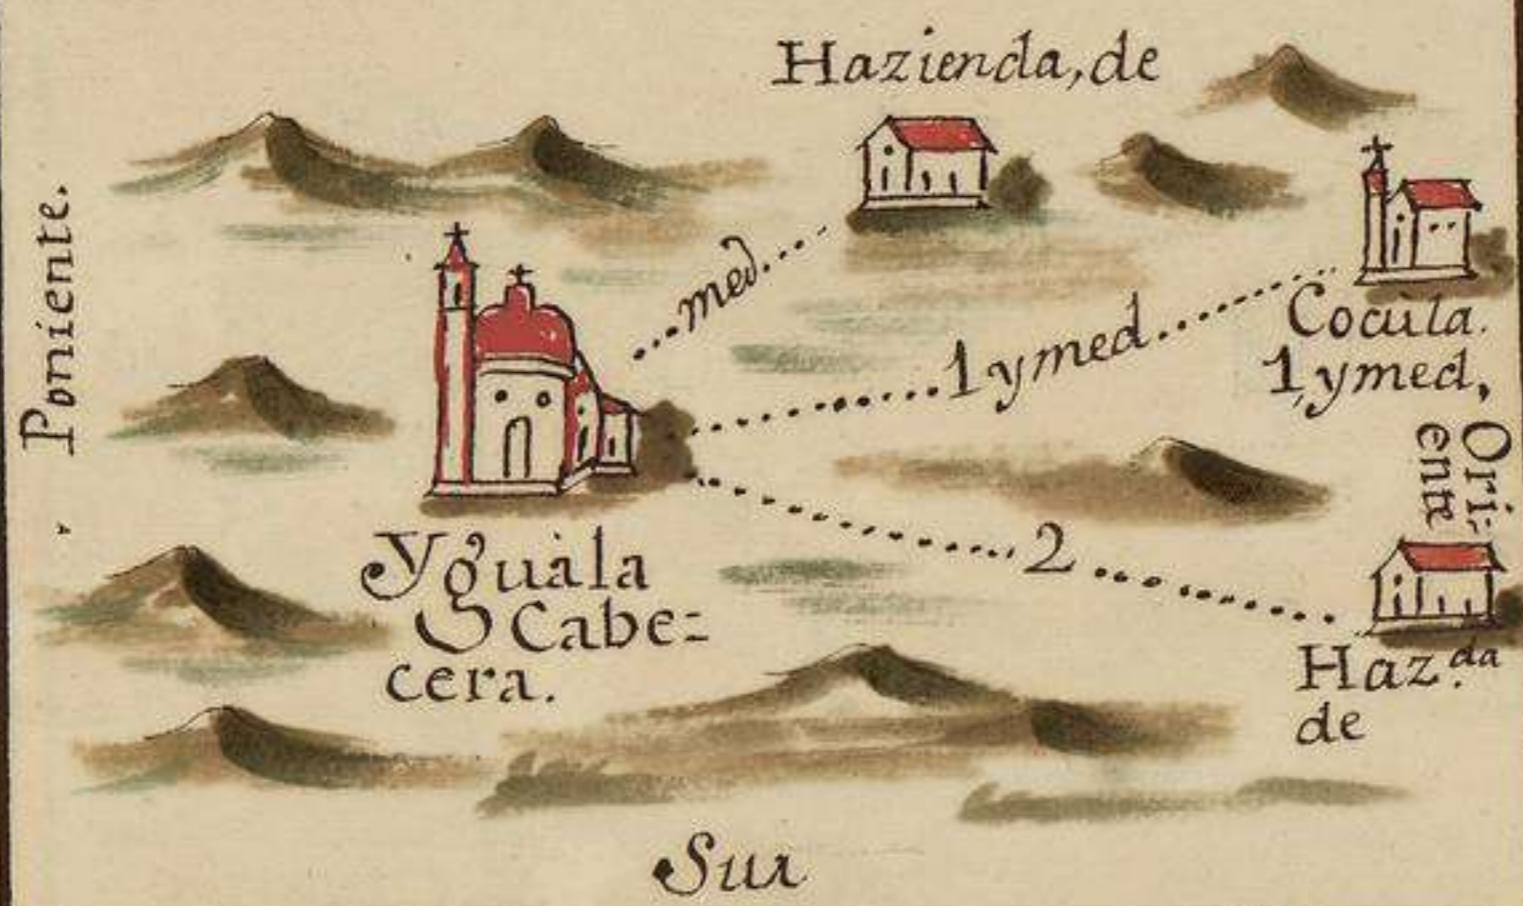 Hazienda, de
Poniente.
med.
1 y med.
Cocula.
1, y med,
Ori-
ente
Yguala
Cabe=
cera.
2
Haz.da
de
Sur